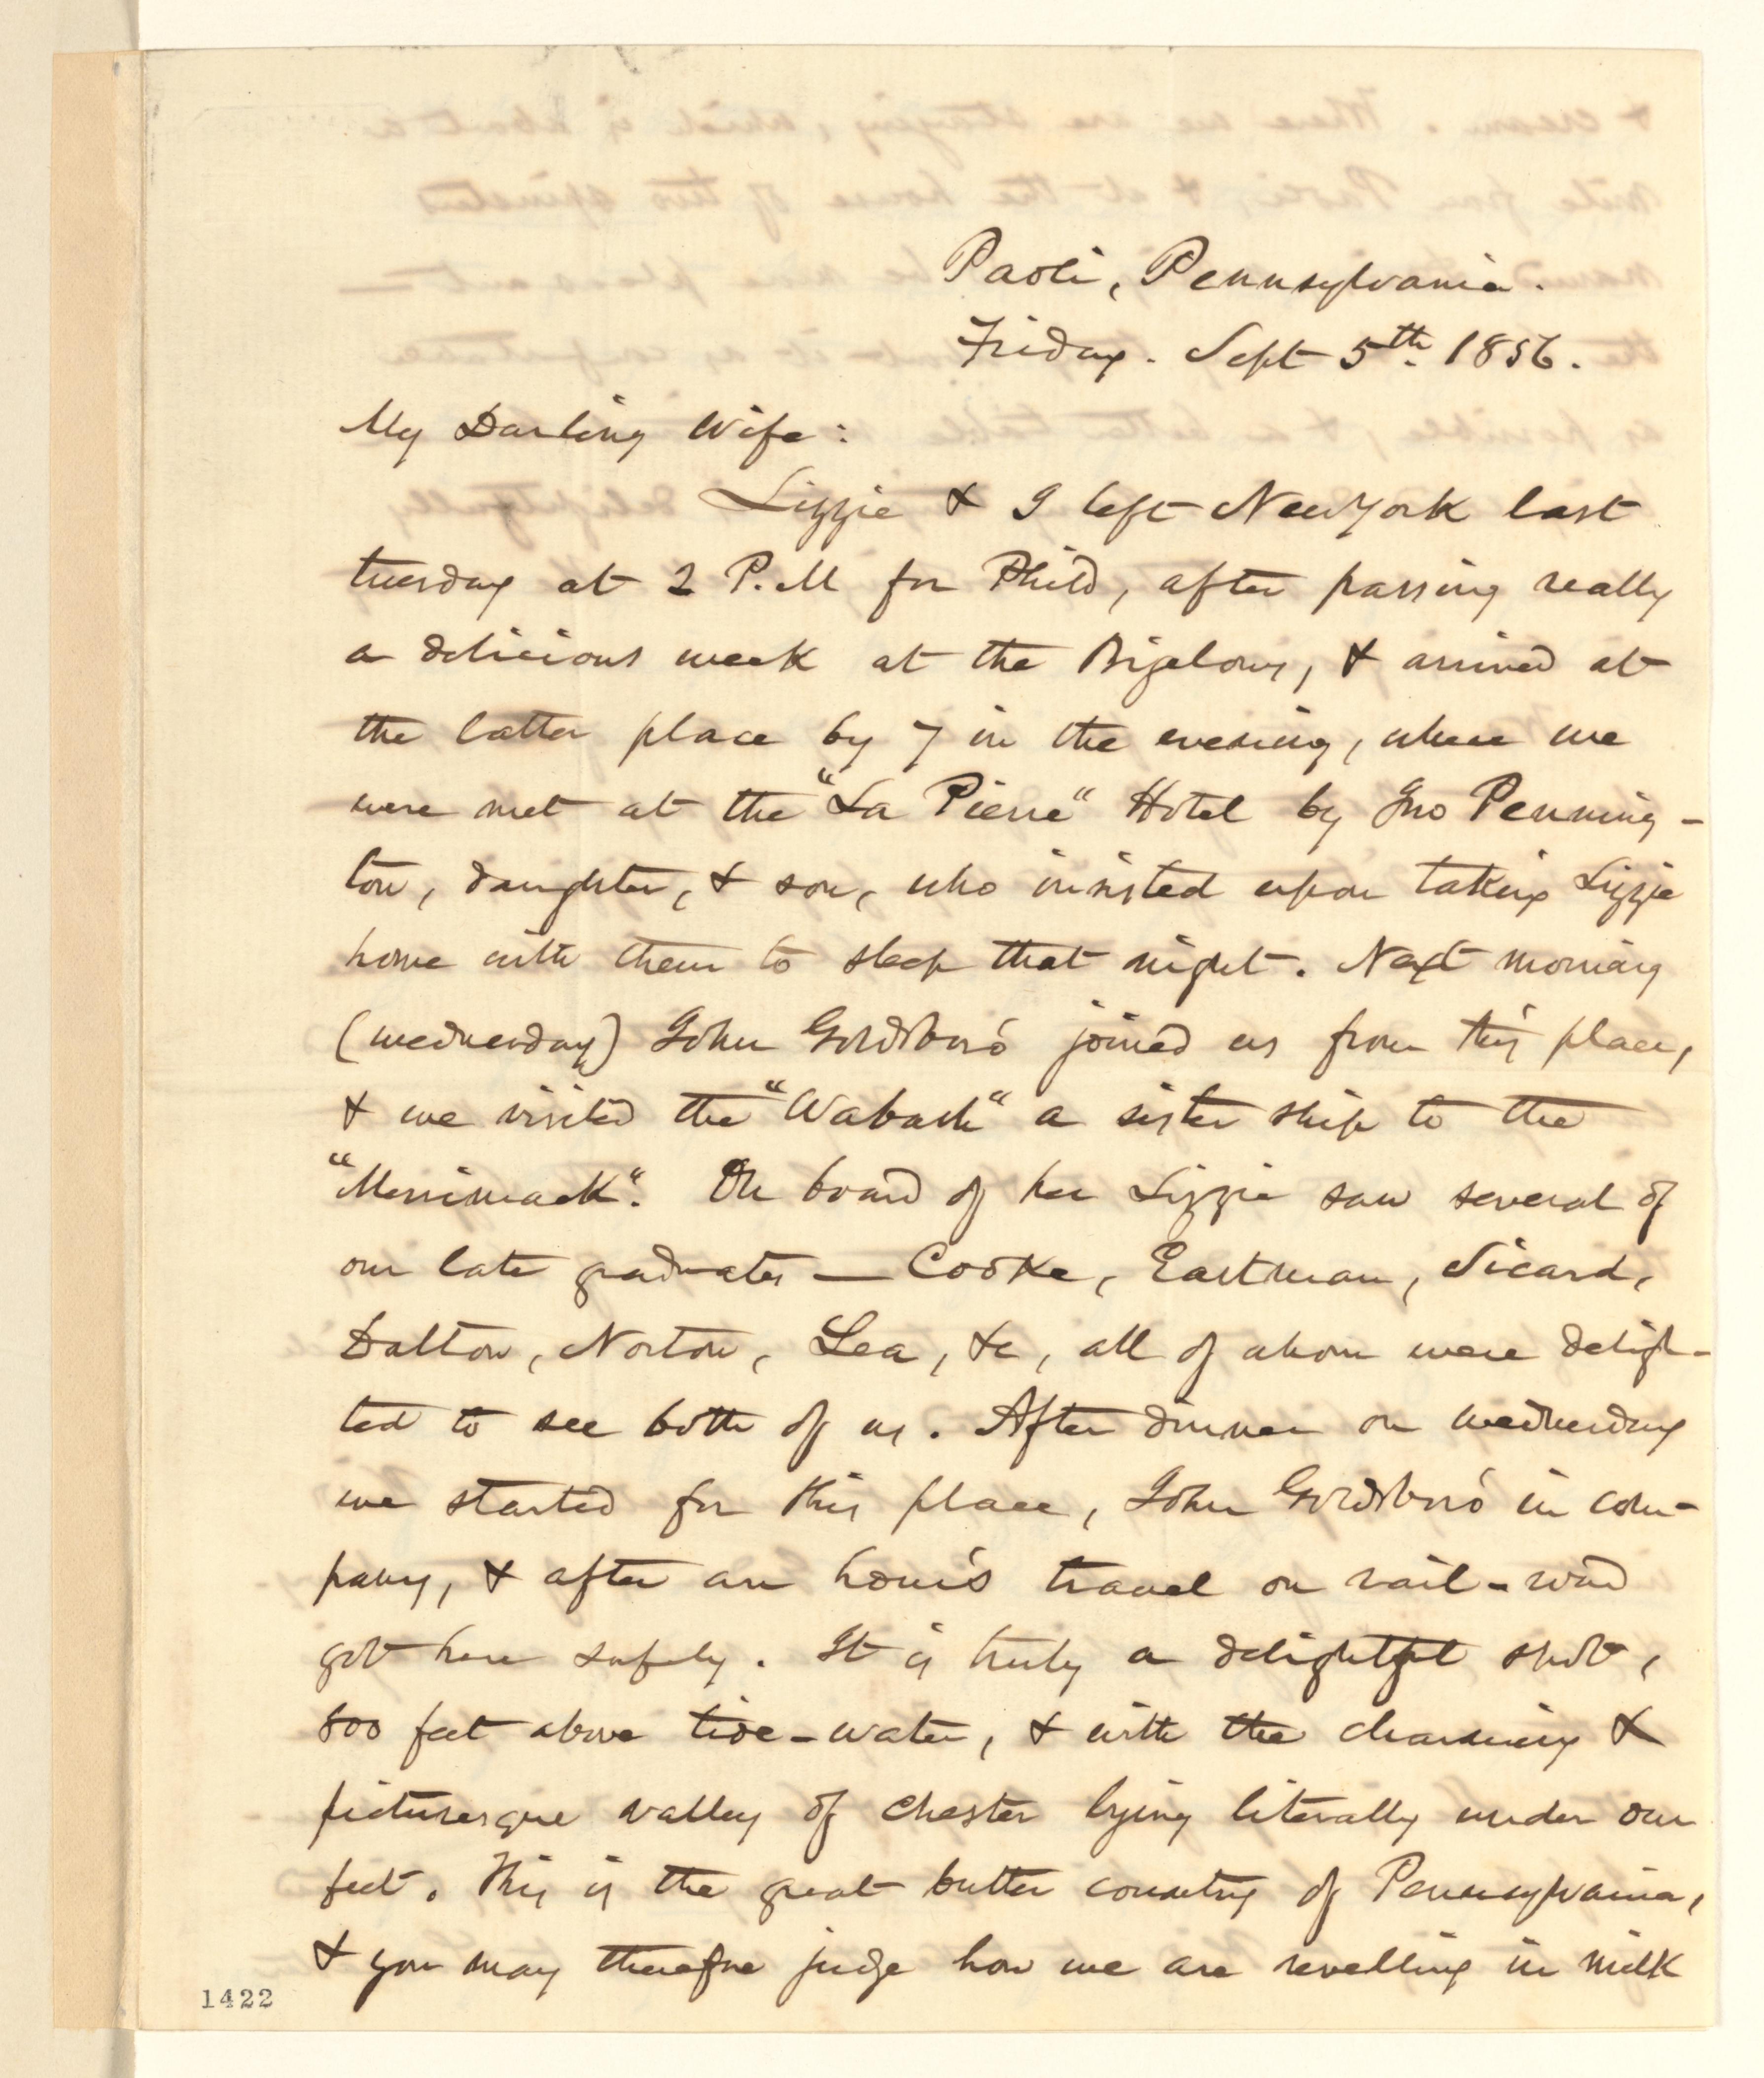 Paoli, Pennsylvania.
Friday. Sept 5th. 1856.
My Darling Wife:
Lizzie & I left New York last
tuesday at 2 P.M for Phild, after passing really
a delicious week at the Bigelows, & arrived at
the latter place by 7 in the evening, where we
were met at the "La Pierre" Hotel by Jno Penning-
ton, daughter, & son, who insisted upon taking Lizzie
home with them to sleep that night. Next morning
(wednesday) John Goldsboro' joined us from this place,
& we visited the "Wabash" a sister ship to the
"Merrimack". On board of her Lizzie saw several of
our late graduates — Cooke, Eastman, Sicard,
Dalton, Norton, Lea, &c, all of whom were deligh-
ted to see both of us. After dinner on wednesday
we started for this place, John Goldsboro' in com-
pany, & after an hour's travel on rail-road
got here safely. It is truly a delightful spot,
800 feet above tide-water, & with the charming &
picturesque valley of Chester lying literally under our
feet. This is the great butter country of Pennsylvania,
& you may therefore judge how we are revelling in milk
1422